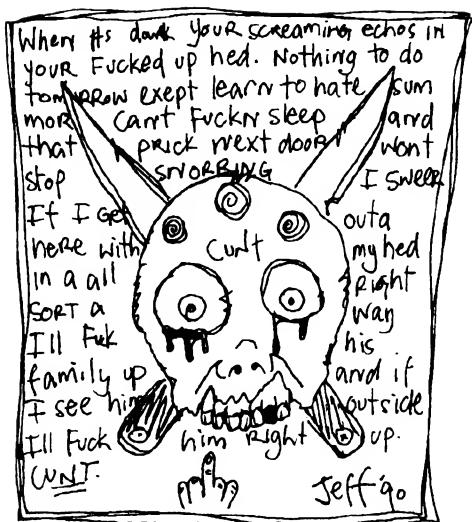 When its dark your screaming echos in
your Fucked up hed. Nothing to do
tomorrow exept learn to hate sum
mor Cant Fuckn sleep and
that prick next door wont
stop snorring I sweer
If I get outa
here with my hed
in a all right
sort a way
Ill Fuk his
family up and if
I see him outside
Ill Fuck him right up.
Cunt.
Cunt
Jeff '90